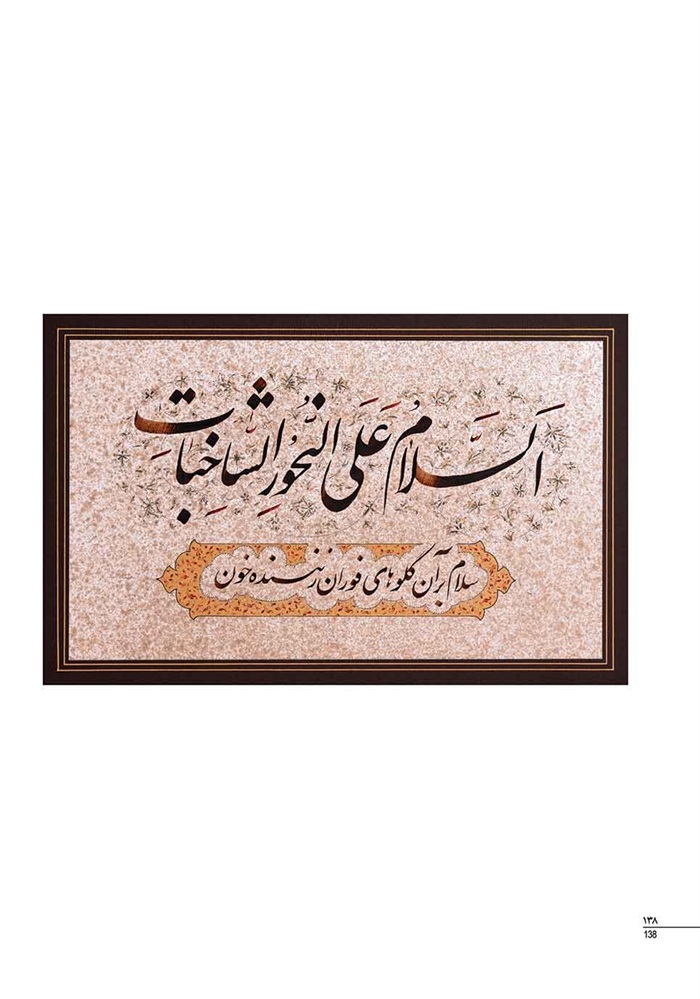 اَلسَّلامُ عَلَى النُّحُورِ الشّاخِباتِ
سلام بر آن گلوهای فوران زننده خون
۱۳۸
138